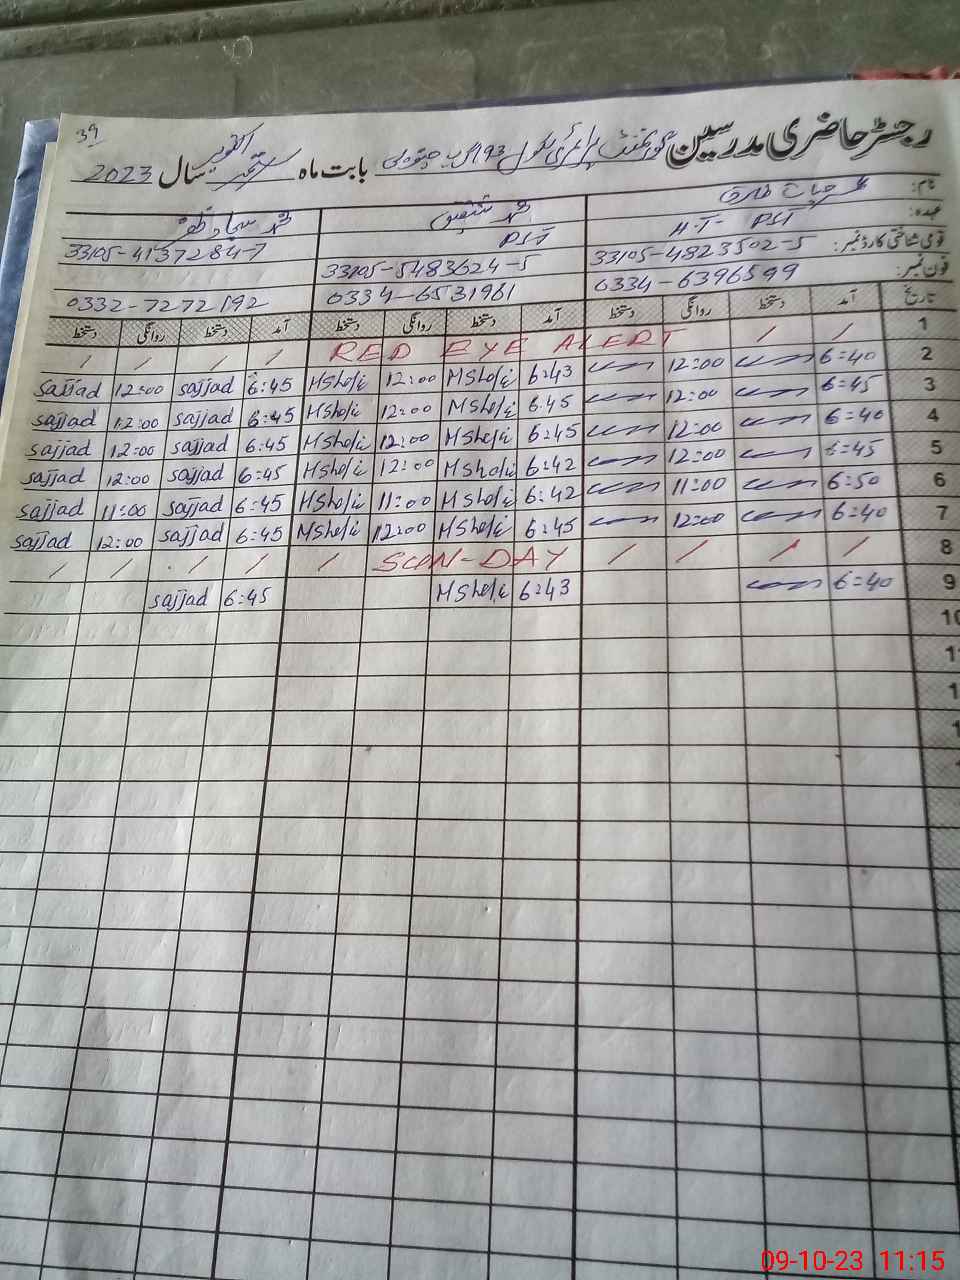 39
رجسٹر حاضری مدرسین گورنمنٹ پرائمری سکول 193 بابت ماہ اکتوبر سال 2023
نام: محمد شفیق محمد سجاد ظفر
عہدہ: H.T- PST PST
قومی شناختی کارڈ نمبر: 33105-4823502-5 33105-5483624-5 33105-4137284-7
فون نمبر: 0334-6396599 0334-6531961 0332-7272192
تاریخ آمد دستخط روانگی دستخط آمد دستخط روانگی دستخط آمد دستخط روانگی دستخط
1 / / RED EYE ALERT / / / /
2 6:40 12:00 6:43 MShafi 12:00 MShafi 6:45 sajjad 12:00 sajjad
3 6:45 12:00 6:45 MShafi 12:00 MShafi 6:45 sajjad 12:00 sajjad
4 6:40 12:00 6:45 MShafi 12:00 MShafi 6:45 sajjad 12:00 sajjad
5 6:45 12:00 6:42 MShafi 12:00 MShafi 6:45 sajjad 12:00 sajjad
6 6:50 11:00 6:42 MShafi 11:00 MShafi 6:45 sajjad 11:00 sajjad
7 6:40 12:00 6:45 MShafi 12:00 MShafi 6:45 sajjad 12:00 sajjad
8 / / / / SUN-DAY / / / / /
9 6:40 6:43 MShafi 6:45 sajjad
10
09-10-23 11:15